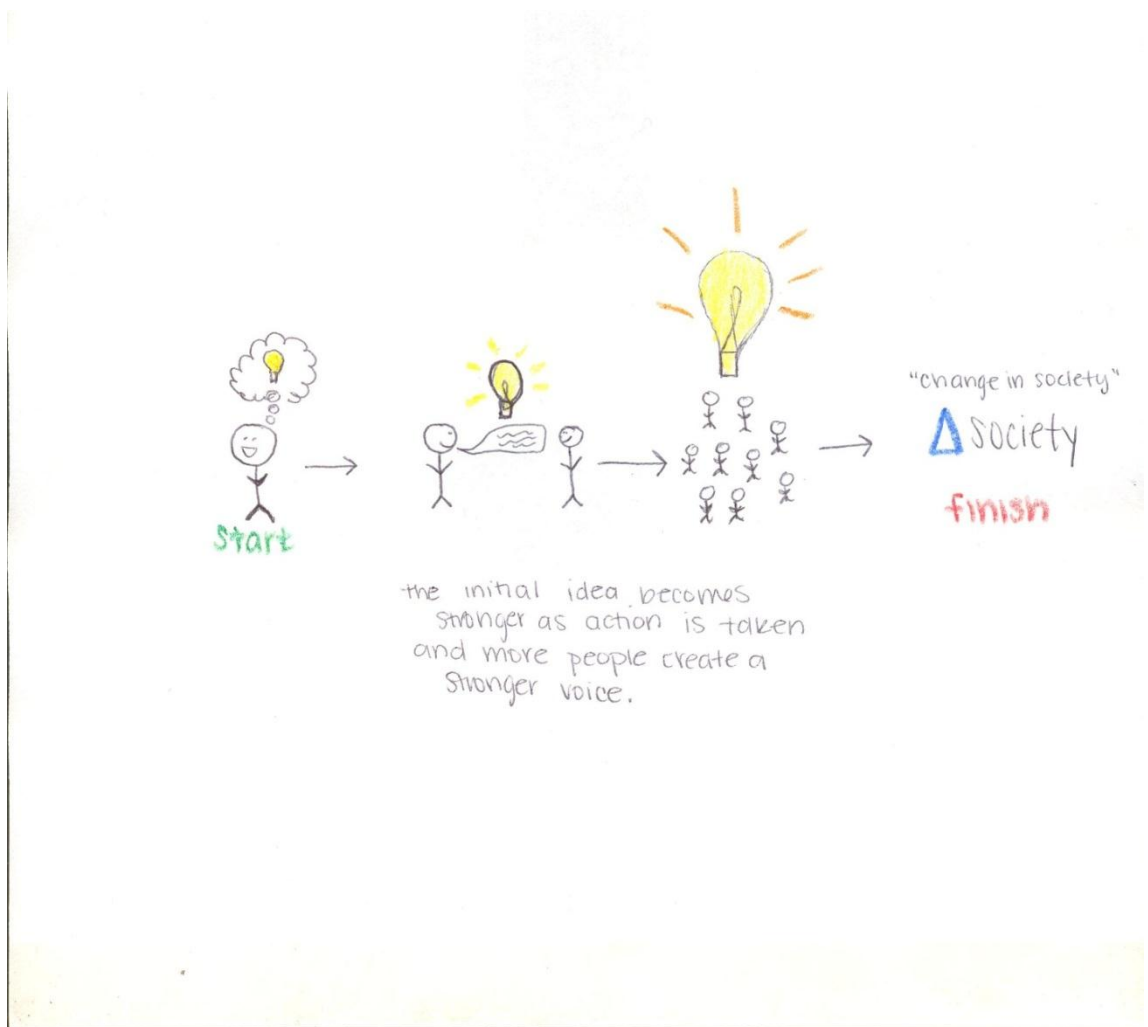 "change in society"
Δ society
finish
start
the initial idea becomes
stronger as action is taken
and more people create a
stronger voice.